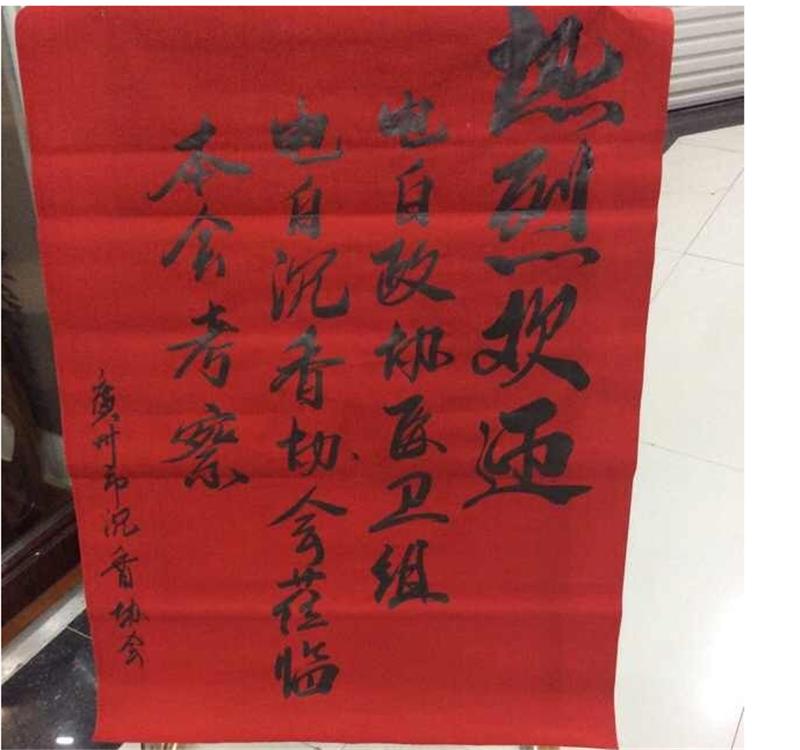 热烈欢迎
电白政协医卫组
电白沉香协会莅临
本会考察
廣州市沉香协会